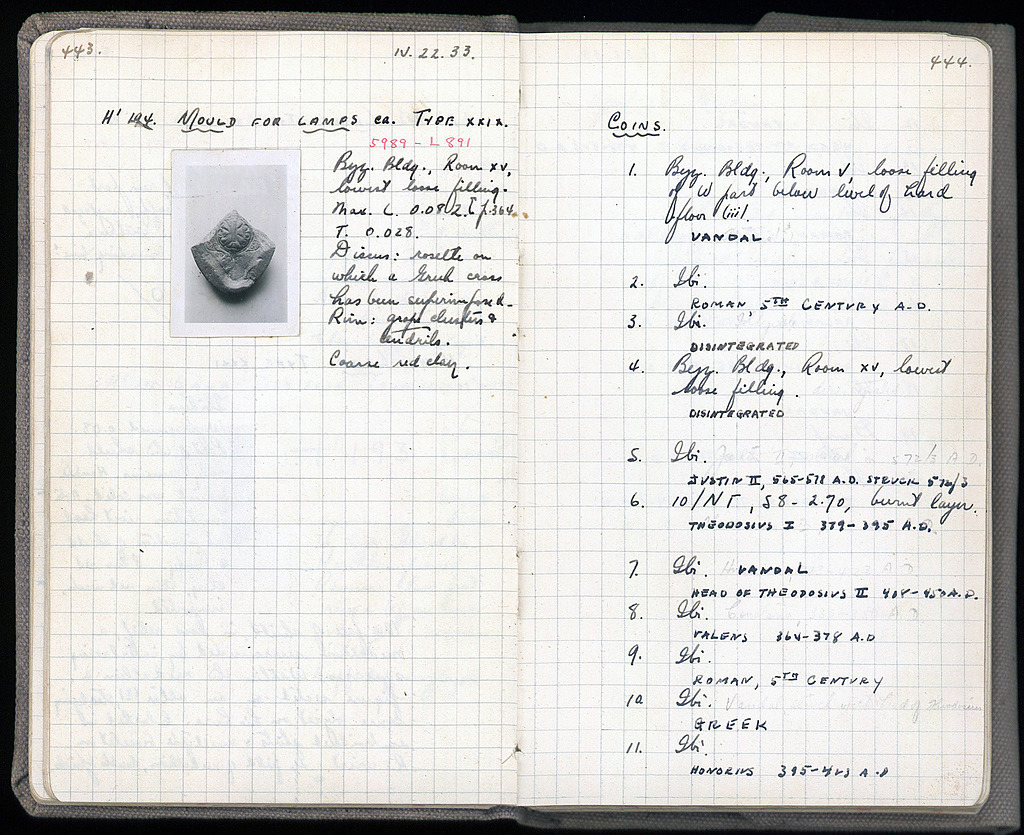 443.
IV. 22. 33.
H' 194. MOULD FOR LAMPS ca. TYPE XXIX.
5989 - L 891
Byz. Bldg., Room XV,
lowest loose filling.
Max. L. 0.082. [p. 364
T. 0.028.
Discus: rosette on
which a Greek cross
has been superimposed.
Rim: grape clusters &
tendrils.
Coarse red clay.
444.
COINS.
1. Byz. Bldg., Room V, loose filling
of W part below level of hard
floor (iii).
VANDAL
2. Ibi.
ROMAN, 5TH CENTURY A.D.
3. Ibi.
DISINTEGRATED
4. Byz. Bldg., Room XV, lowest
loose filling.
DISINTEGRATED
5. Ibi. 572/3 A.D.
JUSTIN II, 565-578 A.D. STRUCK 572/3
6. 10/NΓ, 58 - 2.70, burnt layer.
THEODOSIUS I 379-395 A.D.
7. Ibi. VANDAL
HEAD OF THEODOSIUS II 408-450 A.D.
8. Ibi.
VALENS 364-378 A.D
9. Ibi.
ROMAN, 5TH CENTURY
10 Ibi.
GREEK
11. Ibi.
HONORIUS 395-423 A.D